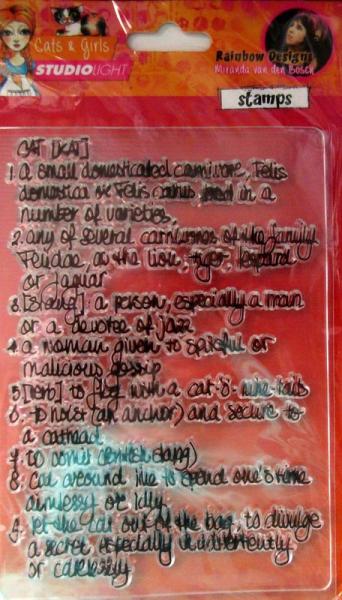 Cats & Girls
STUDIOLIGHT
Rainbow Designs
Miranda van den Bosch
stamps
CAT [KAT]
1. a small domesticated carnivore, Felis
domestica or Felis catus, bred in a
number of varieties,
2. any of several carnivores of the family
Felidae, as the lion, tiger, leopard
or jaguar
3. [slang]: a person, especially a man
or a devotee of jazz
4. a woman given to spiteful or
malicious gossip
5. [verb] to flog with a cat-o'-nine-tails
6. to hoist (an anchor) and secure to
a cathead
7. to vomit (British slang)
8. Cat around: like to spend one's time
aimlessly or idly
9. let the cat out of the bag, to divulge
a secret especially inadvertently
or carelessly